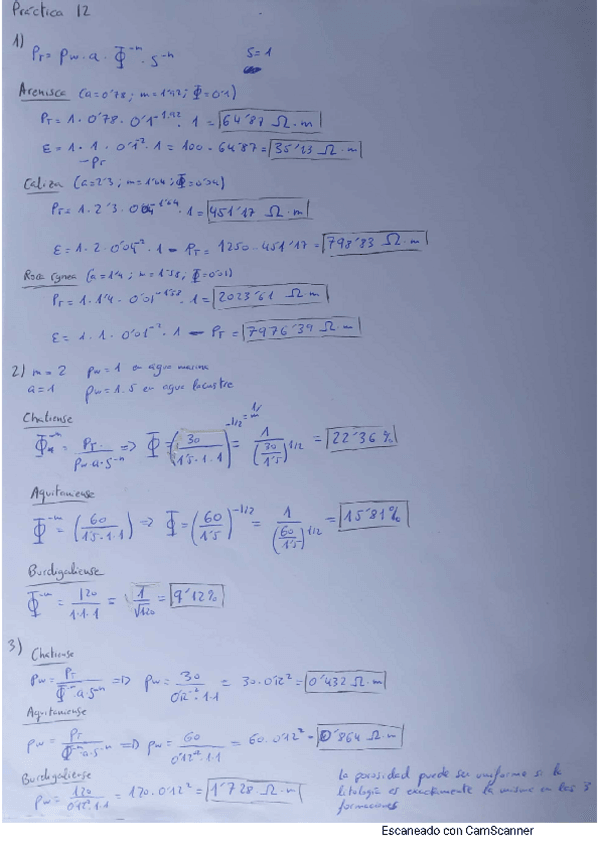 Práctica 12
1)
ρT = ρw · a · Φ^-m · S^-n    S=1
Arenisca (a=0'78; m=1'92; Φ=0'1)
ρT = 1 · 0'78 · 0'1^-1'92 · 1 = 64'87 Ω·m
ε = 1 · 1 · 0'1^-2 · 1 = 100 - 64'87 = 35'13 Ω·m
- ρT
Caliza (a=2'3; m=1'64; Φ=0'04)
ρT = 1 · 2'3 · 0'04^-1'64 · 1 = 451'17 Ω·m
ε = 1 · 2 · 0'04^-2 · 1 - ρT = 1250 - 451'17 = 798'83 Ω·m
Roca ígnea (a=1'4; m=1'58; Φ=0'01)
ρT = 1 · 1'4 · 0'01^-1'58 · 1 = 2023'61 Ω·m
ε = 1 · 1 · 0'01^-2 · 1 - ρT = 7976'39 Ω·m
2) m=2    ρw=1 en agua marina
a=1    ρw=1.5 en agua lacustre
Chatiense
Φ^-m = ρT / (ρw·a·S^-n) => Φ = (30 / (1'5·1·1))^-1/2 = 1 / (30/1'5)^1/2 = 22'36 %
Aquitaniense
Φ^-m = (60 / (1'5·1·1)) => Φ = (60/1'5)^-1/2 = 1 / (60/1'5)^1/2 = 15'81 %
Burdigaliense
Φ^-m = 120 / (1·1·1) = 1/√120 = 9'12%
3)
Chatiense
ρw = ρT / (Φ^-m·a·S^-n) => ρw = 30 / (0'12^-2·1·1) = 30·0'12² = 0'432 Ω·m
Aquitaniense
ρw = ρT / (Φ^-m·a·S^-n) => ρw = 60 / (0'12^-2·1·1) = 60·0'12² = 0'864 Ω·m
Burdigaliense
ρw = 120 / (0'12^-2·1·1) = 120·0'12² = 1'728 Ω·m
La porosidad puede ser uniforme si la
litología es exactamente la misma en las 3
formaciones
Escaneado con CamScanner